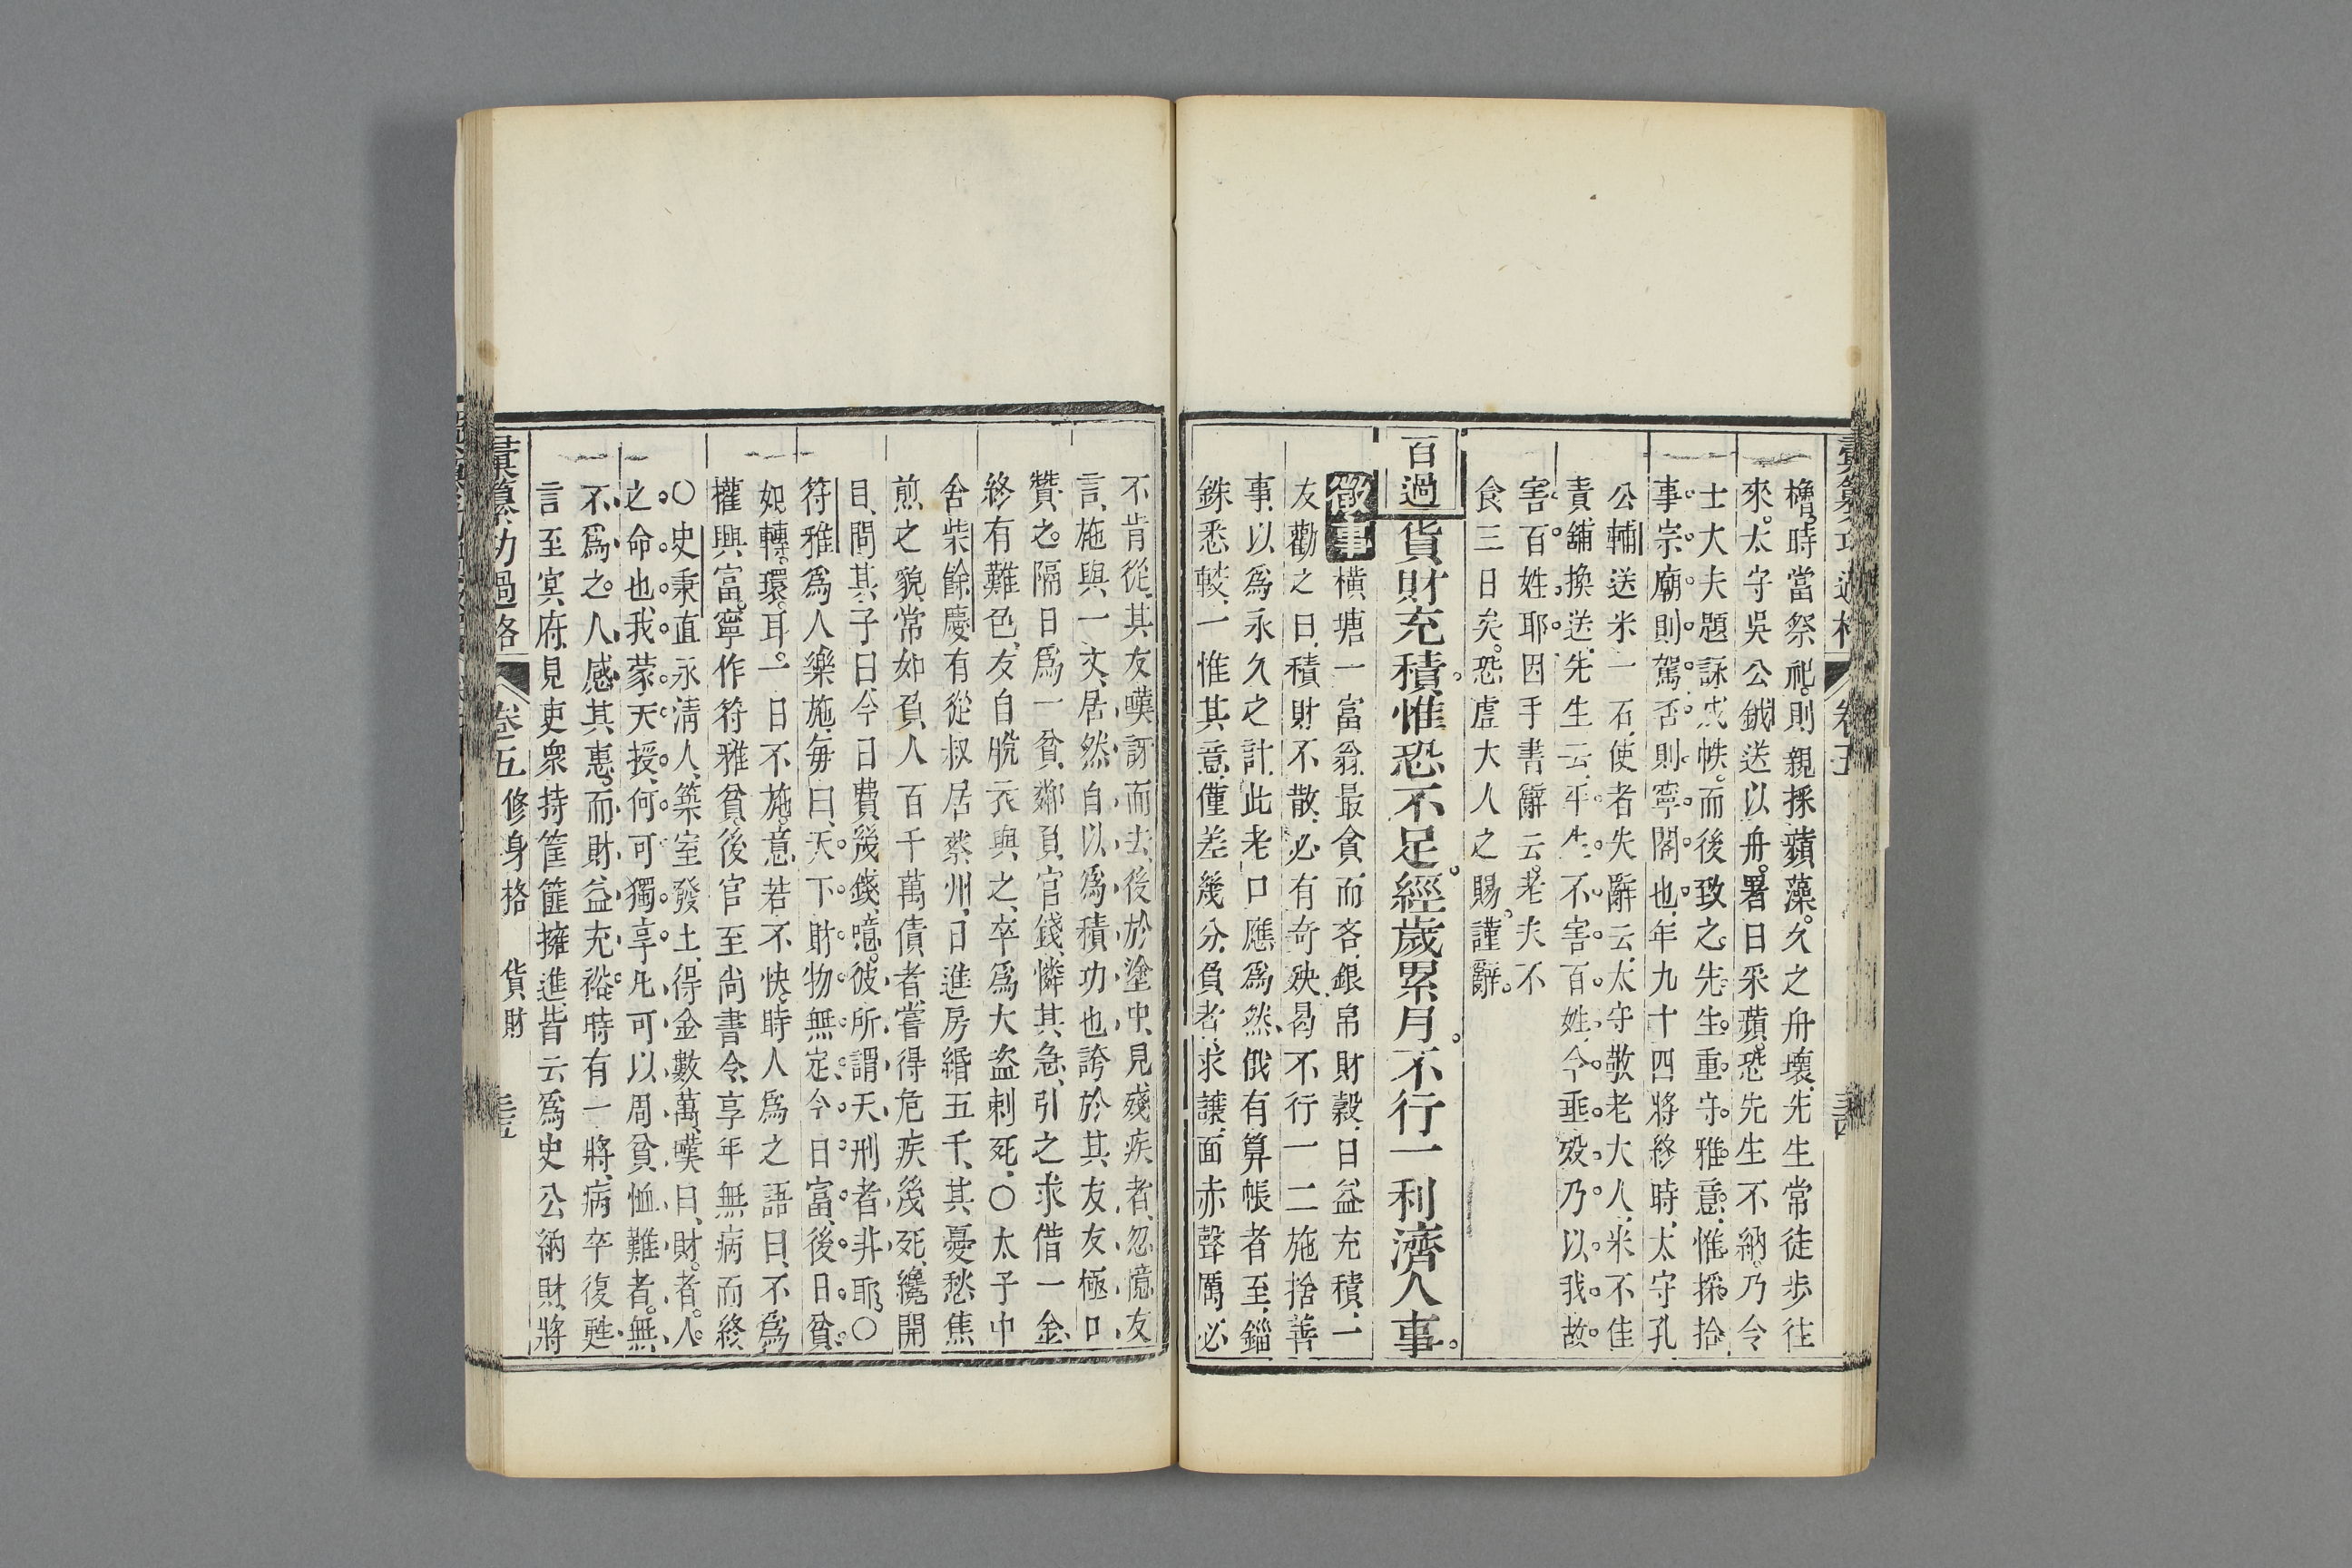 彙纂功過格 卷五
櫓時當祭祀則親採蘋藻。久之舟壞先生常徒步往
來。太守吳公鉞送以舟。署曰采蘋。恐先生不納。乃令
士大夫題詠成帙。而後致之先生重守雅意惟採拾
事宗廟則駕否則寧閣也年九十四將終時太守孔
公輔送米一石使者失辭云太守敬老大人米不佳
責舖換送先生云平生不害百姓今垂歿乃以我故
害百姓耶因手書辭云老夫不
食三日矣。恐虛大人之賜謹辭。
百過 貨財充積。惟恐不足。經歲累月。不行一利濟人事。
徵事 橫塘一富翁最貪而吝銀帛財穀日益充積一
友勸之曰積財不散必有奇殃曷不行一二施捨善
事以為永久之計此老口應為然俄有算帳者至錙
銖悉較一惟其意僅差幾分負者求讓面赤聲厲必
不肯從其友嘆訝而去後於塗中見殘疾者忽憶友
言施與一文居然自以為積功也誇於其友友極口
贊之隔日為一貧鄰負官錢憐其急引之求借一金
終有難色友自脫衣與之卒為大盜刺死○太子中
舍柴餘慶有從叔居蔡州日進房緡五千其憂愁焦
煎之貌常如負人百千萬債者嘗得危疾後死纔開
目問其子曰今日費幾錢噫彼所謂天刑者非耶○
符雅為人樂施每曰天下財物無定今日富後日貧
如轉環耳一日不施意若不快時人為之語曰不為
權興富寧作符雅貧後官至尚書令享年無病而終
○史秉直永清人築室發土得金數萬嘆曰財者人
之命也我蒙天授何可獨享凡可以周貧恤難者無
不為之人感其惠而財益充裕時有一將病卒復甦
言至冥府見吏眾持筐篚擁進皆云為史公納財將
彙纂功過格 卷五 修身格 貨財 三五